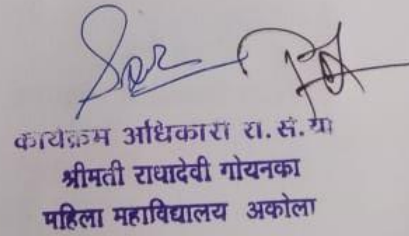 कार्यक्रम अधिकारी रा. सं. या
श्रीमती राधादेवी गोयनका
महिला महाविद्यालय अकोला